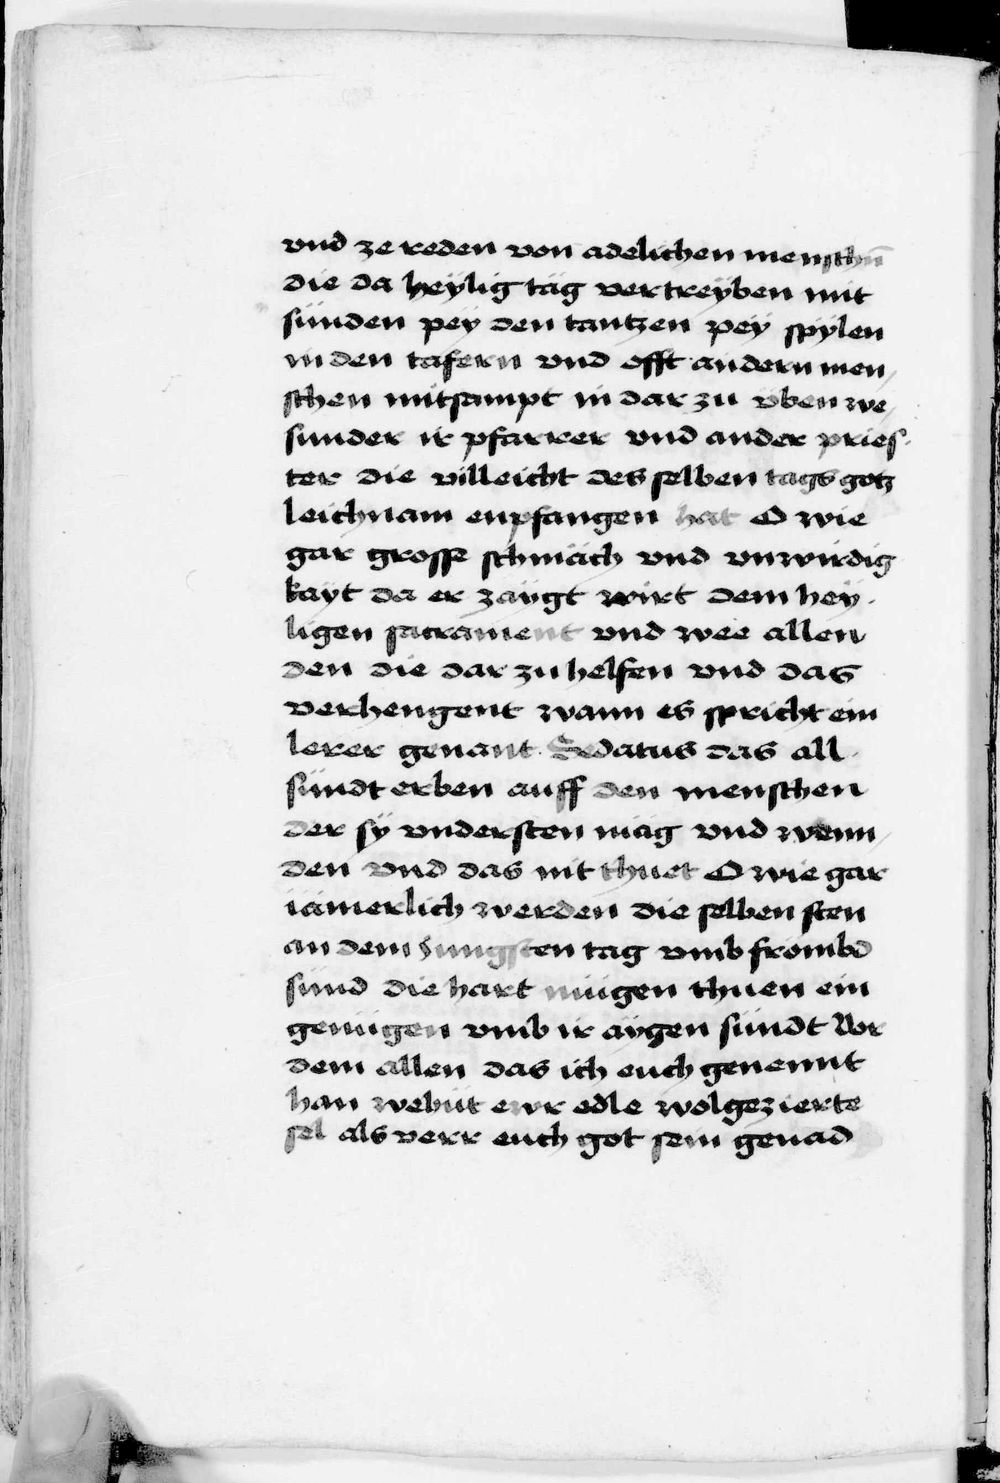 vnd ze reden von adelichen menschn̄
die da heÿlig täg vertreÿben mit
sünden peÿ den tantzen peÿ spÿlen
in den tafern vnd offt andern men,
schen mitsampt in dar zu üben we,
sunder ir pfarrer vnd ander pries,
ter die villeicht des selben tags gotz
leichnam enpfangen hat O wie
gar grosse schmäch vnd vnwirdig
kaÿt da er zaÿgt wirt dem heÿ,
ligen sacrament vnd wee allen
den die dar zu helfen vnd das
verhengent wann es spricht ein
lerer genant Sedatus das all
sündt erben auff den menschen
der sÿ vndersten mäg vnd wenn,
den vnd das nit thuet O wie gar
iämerlich werden die selben sten
an dem Jungsten tag vmb frömbd
sünd die hart mügen thuen ein
genügen vmb ir aÿgen sündt Vor
dem allen das ich euch genennt
han wehüt ewr edle wolgezierte
sel als verr euch got sein genad